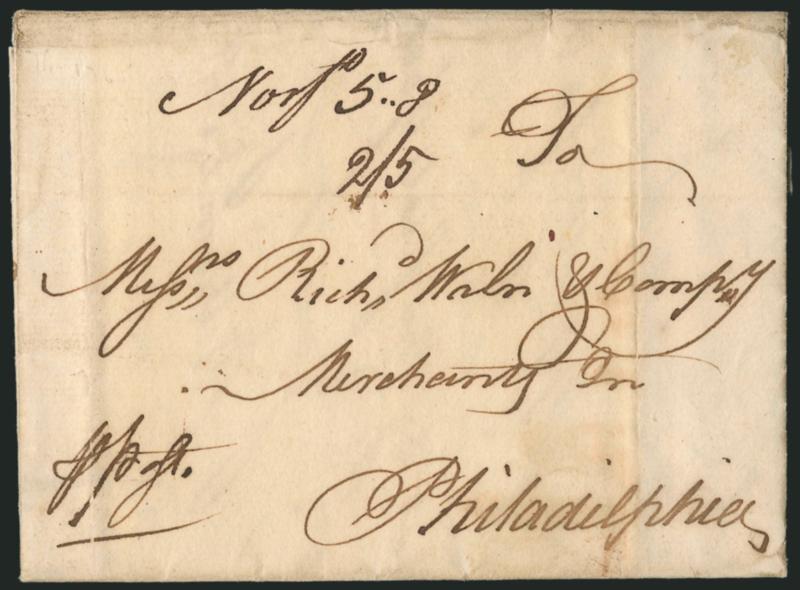 Norfo 5..8
2/5
To
Messrs Richd Waln & Compy
Merchants In
Philadelphia
p Post.